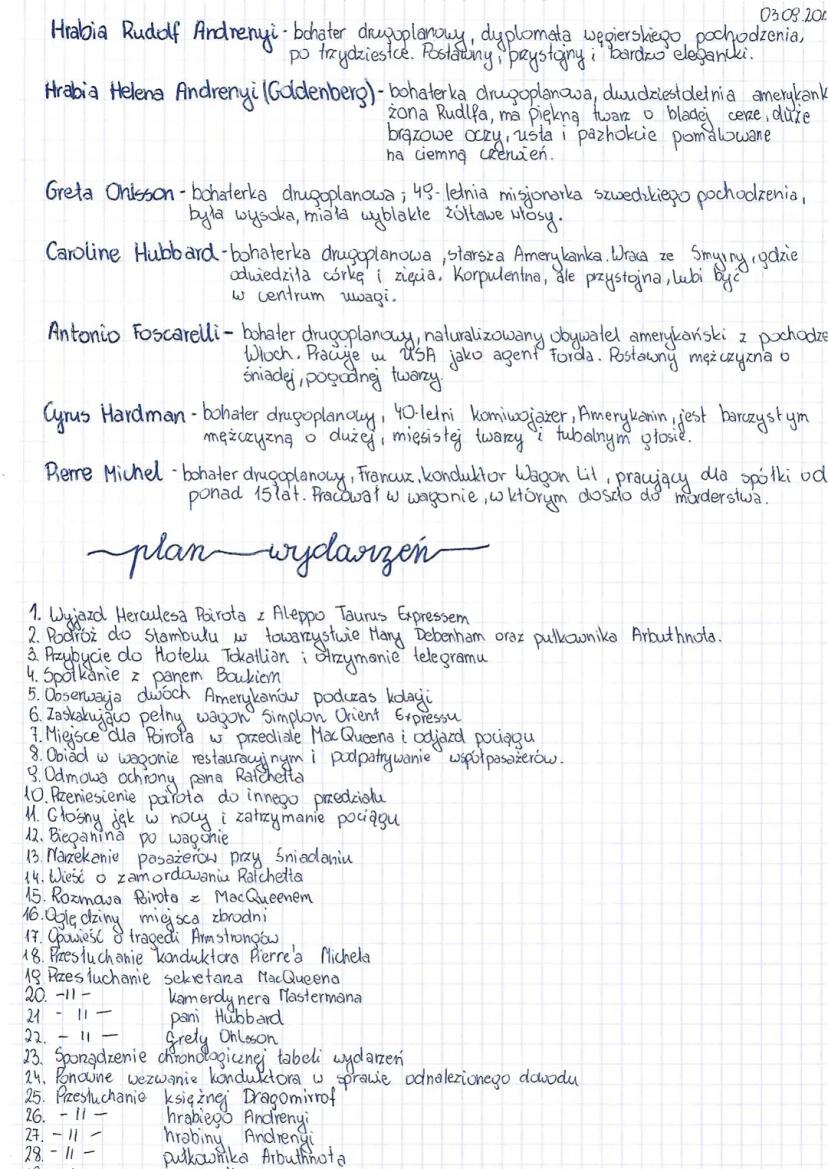 03.09.201
Hrabia Rudolf Andrenyi - bohater drugoplanowy, dyplomata węgierskiego pochodzenia,
po trzydziestce. Postawny, przystojny i bardzo elegancki.
Hrabia Helena Andrenyi (Goldenberg) - bohaterka drugoplanowa, dwudziestoletnia amerykank
żona Rudlfa, ma piękną twarz o bladej cerze, duże
brązowe oczy, usta i paznokcie pomalowane
na ciemną czerwień.
Greta Ohlsson - bohaterka drugoplanowa; 49-letnia misjonarka szwedzkiego pochodzenia,
była wysoka, miała wyblakłe żółtawe włosy.
Caroline Hubbard - bohaterka drugoplanowa, starsza Amerykanka. Wraca ze Smyrny, gdzie
odwiedziła córkę i zięcia. Korpulentna, ale przystojna, lubi być
w centrum uwagi.
Antonio Foscarelli - bohater drugoplanowy, naturalizowany obywatel amerykański z pochodze
Włoch. Pracuje w USA jako agent Forda. Postawny mężczyzna o
śniadej, pogodnej twarzy.
Cyrus Hardman - bohater drugoplanowy, 40-letni komiwojażer, Amerykanin, jest barczystym
mężczyzną o dużej, mięsistej twarzy i tubalnym głosie.
Pierre Michel - bohater drugoplanowy, Francuz, konduktor Wagon Lit, pracujący dla spółki od
ponad 15 lat. Pracował w wagonie, w którym doszło do morderstwa.
plan wydarzeń
1. Wyjazd Herculesa Poirota z Aleppo Taurus Expressem
2. Podróż do Stambułu w towarzystwie Mary Debenham oraz pułkownika Arbuthnota.
3. Przybycie do Hotelu Tokatlian i otrzymanie telegramu
4. Spotkanie z panem Boukiem
5. Obserwacja dwóch Amerykanów podczas kolacji
6. Zaskakująco pełny wagon Simplon Orient Expressu
7. Miejsce dla Poirota w przedziale MacQueena i odjazd pociągu
8. Obiad w wagonie restauracyjnym i podpatrywanie współpasażerów.
9. Odmowa ochrony pana Ratchetta
10. Przeniesienie poirota do innego przedziału
11. Głośny jęk w nocy i zatrzymanie pociągu
12. Bieganina po wagonie
13. Narzekanie pasażerów przy śniadaniu
14. Wieść o zamordowaniu Ratchetta
15. Rozmowa Poirota z MacQueenem
16. Oględziny miejsca zbrodni
17. Opowieść o tragedi Armstrongów
18. Przesłuchanie konduktora Pierre'a Michela
19. Przesłuchanie sekretarza MacQueena
20. -11- kamerdynera Mastermana
21 - 11 - pani Hubbard
22. - 11 - Grety Ohlsson
23. Sporządzenie chronologicznej tabeli wydarzeń
24. Ponowne wezwanie konduktora w sprawie odnalezionego dowodu
25. Przesłuchanie księżnej Dragomirrof
26. - 11 - hrabiego Andrenyi
27. - 11 - hrabiny Andrenyi
28. - 11 - pułkownika Arbuthnota